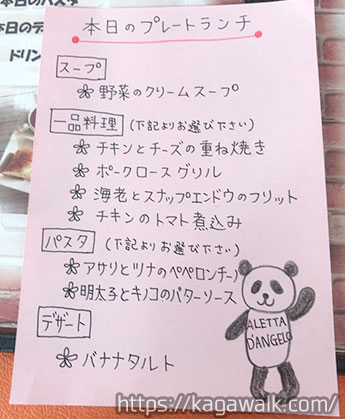 本日のパスタ
本日のデ
ドリン
本日のプレートランチ
スープ
野菜のクリームスープ
一品料理 (下記よりお選び下さい)
チキンとチーズの重ね焼き
ポークロースグリル
海老とスナップエンドウのフリット
チキンのトマト煮込み
パスタ (下記よりお選び下さい)
アサリとツナのペペロンチーノ
明太子とキノコのバターソース
デザート
バナナタルト
ALETTA
D'ANGELO
https://kagawalk.com/